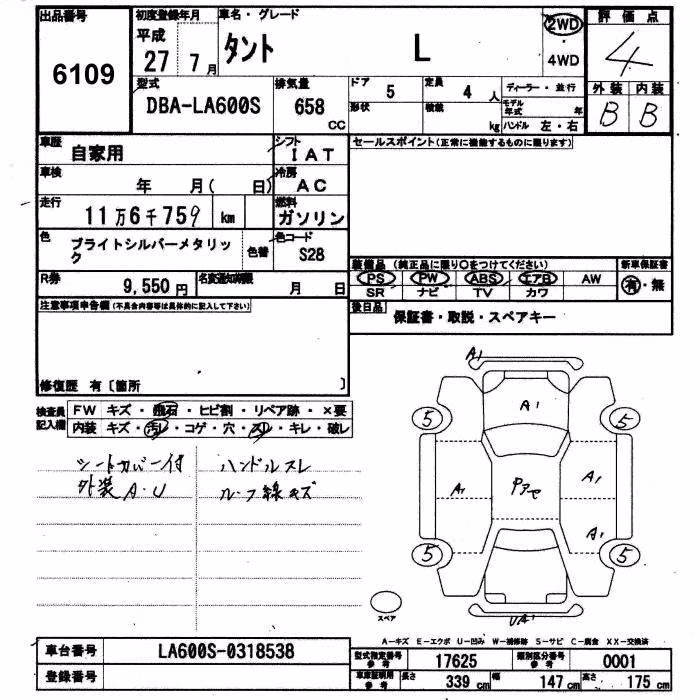 出品番号 初度登録年月 車名・グレード 評価点
6109 平成 27 7月 タント L 2WD 4WD 4
型式 排気量 ドア 5 定員 4人 ディーラー・並行 外装 内装
DBA-LA600S 658 CC 形状 積載 kg モデル年式 年 ハンドル 左・右 B B
車歴 自家用 シフト IAT セールスポイント(正常に機能するものに限ります)
車検 年 月( 日) 冷房 AC
走行 11万6千759 km 燃料 ガソリン
色 ブライトシルバーメタリック 色替 色コード S28
装備品 (純正品に限り○をつけてください) 新車保証書
R券 9,550円 名変通知期限 月 日 PS PW ABS エアB AW 有・無
SR ナビ TV カワ
注意事項申告欄(不具合内容等は具体的に記入して下さい) 後日品 保証書・取説・スペアキー
修復歴 有〔箇所 〕
検査員記入欄 FW キズ・飛石・ヒビ割・リペア跡・×要
内装 キズ・汚レ・コゲ・穴・スレ・キレ・破レ
シートカバー付 ハンドルスレ
外装A・U ルーフ線キズ
A1
A1
5 5
A1 A1
A1
5 5
スペア UA1
A-キズ E-エクボ U-凹み W-補修跡 S-サビ C-腐食 XX-交換済
車台番号 LA600S-0318538 型式指定番号 参考 17625 類別区分番号 参考 0001
登録番号 車庫証明用 参考 長さ 339cm 幅 147cm 高さ 175cm